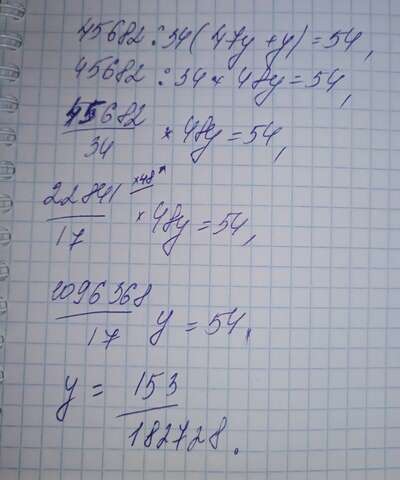 45682 : 34 (47y + y) = 54,
45682 : 34 * 48y = 54,
45682/34 * 48y = 54,
22841 *48/17 * 48y = 54,
1096368/17 y = 54.
y = 153/182728.